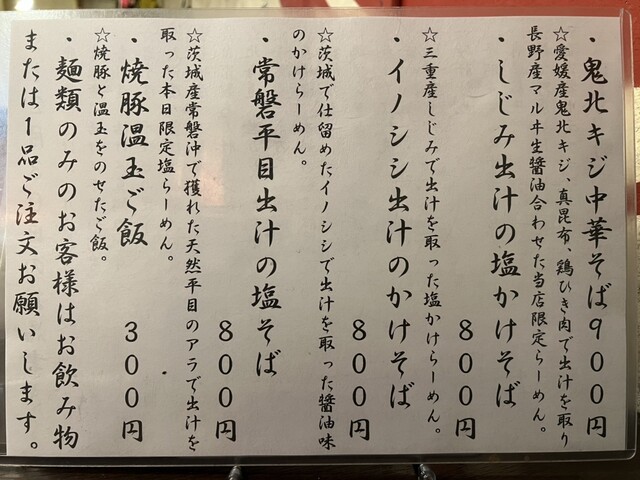 ・鬼北キジ中華そば９００円
☆愛媛産鬼北キジ、真昆布、鶏ひき肉で出汁を取り
長野産マルヰ生醤油合わせた当店限定らーめん。
・しじみ出汁の塩かけそば
８００円
☆三重産しじみで出汁を取った塩かけらーめん。
・イノシシ出汁のかけそば
８００円
☆茨城で仕留めたイノシシで出汁を取った醤油味
のかけらーめん。
・常磐平目出汁の塩そば
８００円
☆茨城産常磐沖で獲れた天然平目のアラで出汁を
取った本日限定塩らーめん。
・焼豚温玉ご飯　３００円
☆焼豚と温玉をのせたご飯。
・麺類のみのお客様はお飲み物
または１品ご注文お願いします。